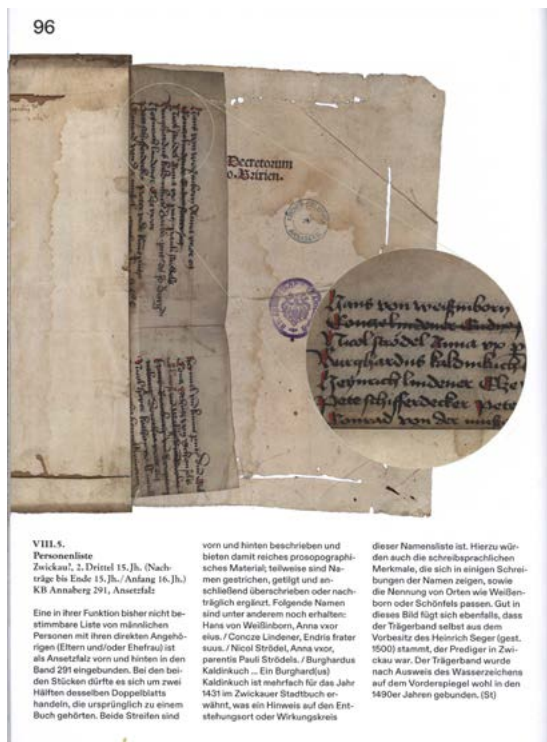 96
Decretorum
o. Brixien.
Hans von weissinborn
Nicol strödel Anna vx
Burghardus kaldinkuch
Heynrich lindener
Pete schifferdecker Pete
Conrad von der
VIII.5.
Personenliste
Zwickau?, 2. Drittel 15. Jh. (Nach-
träge bis Ende 15. Jh. / Anfang 16. Jh.)
KB Annaberg 291, Ansetzfalz
Eine in ihrer Funktion bisher nicht be-
stimmbare Liste von männlichen
Personen mit ihren direkten Angehö-
rigen (Eltern und/oder Ehefrau) ist
als Ansetzfalz vorn und hinten in den
Band 291 eingebunden. Bei den bei-
den Stücken dürfte es sich um zwei
Hälften desselben Doppelblatts
handeln, die ursprünglich zu einem
Buch gehörten. Beide Streifen sind
vorn und hinten beschrieben und
bieten damit reiches prosopographi-
sches Material; teilweise sind Na-
men gestrichen, getilgt und an-
schließend überschrieben oder nach-
träglich ergänzt. Folgende Namen
sind unter anderem noch erhalten:
Hans von Weißinborn, Anna vxor
eius. / Concze Lindener, Endris frater
suus. / Nicol Strödel, Anna vxor,
parentis Pauli Strödels. / Burghardus
Kaldinkuch ... Ein Burghard(us)
Kaldinkuch ist mehrfach für das Jahr
1431 im Zwickauer Stadtbuch er-
wähnt, was ein Hinweis auf den Ent-
stehungsort oder Wirkungskreis
dieser Namensliste ist. Hierzu wür-
den auch die schreibsprachlichen
Merkmale, die sich in einigen Schrei-
bungen der Namen zeigen, sowie
die Nennung von Orten wie Weißen-
born oder Schönfels passen. Gut in
dieses Bild fügt sich ebenfalls, dass
der Trägerband selbst aus dem
Vorbesitz des Heinrich Seger (gest.
1500) stammt, der Prediger in Zwi-
ckau war. Der Trägerband wurde
nach Ausweis des Wasserzeichens
auf dem Vorderspiegel wohl in den
1490er Jahren gebunden. (St)